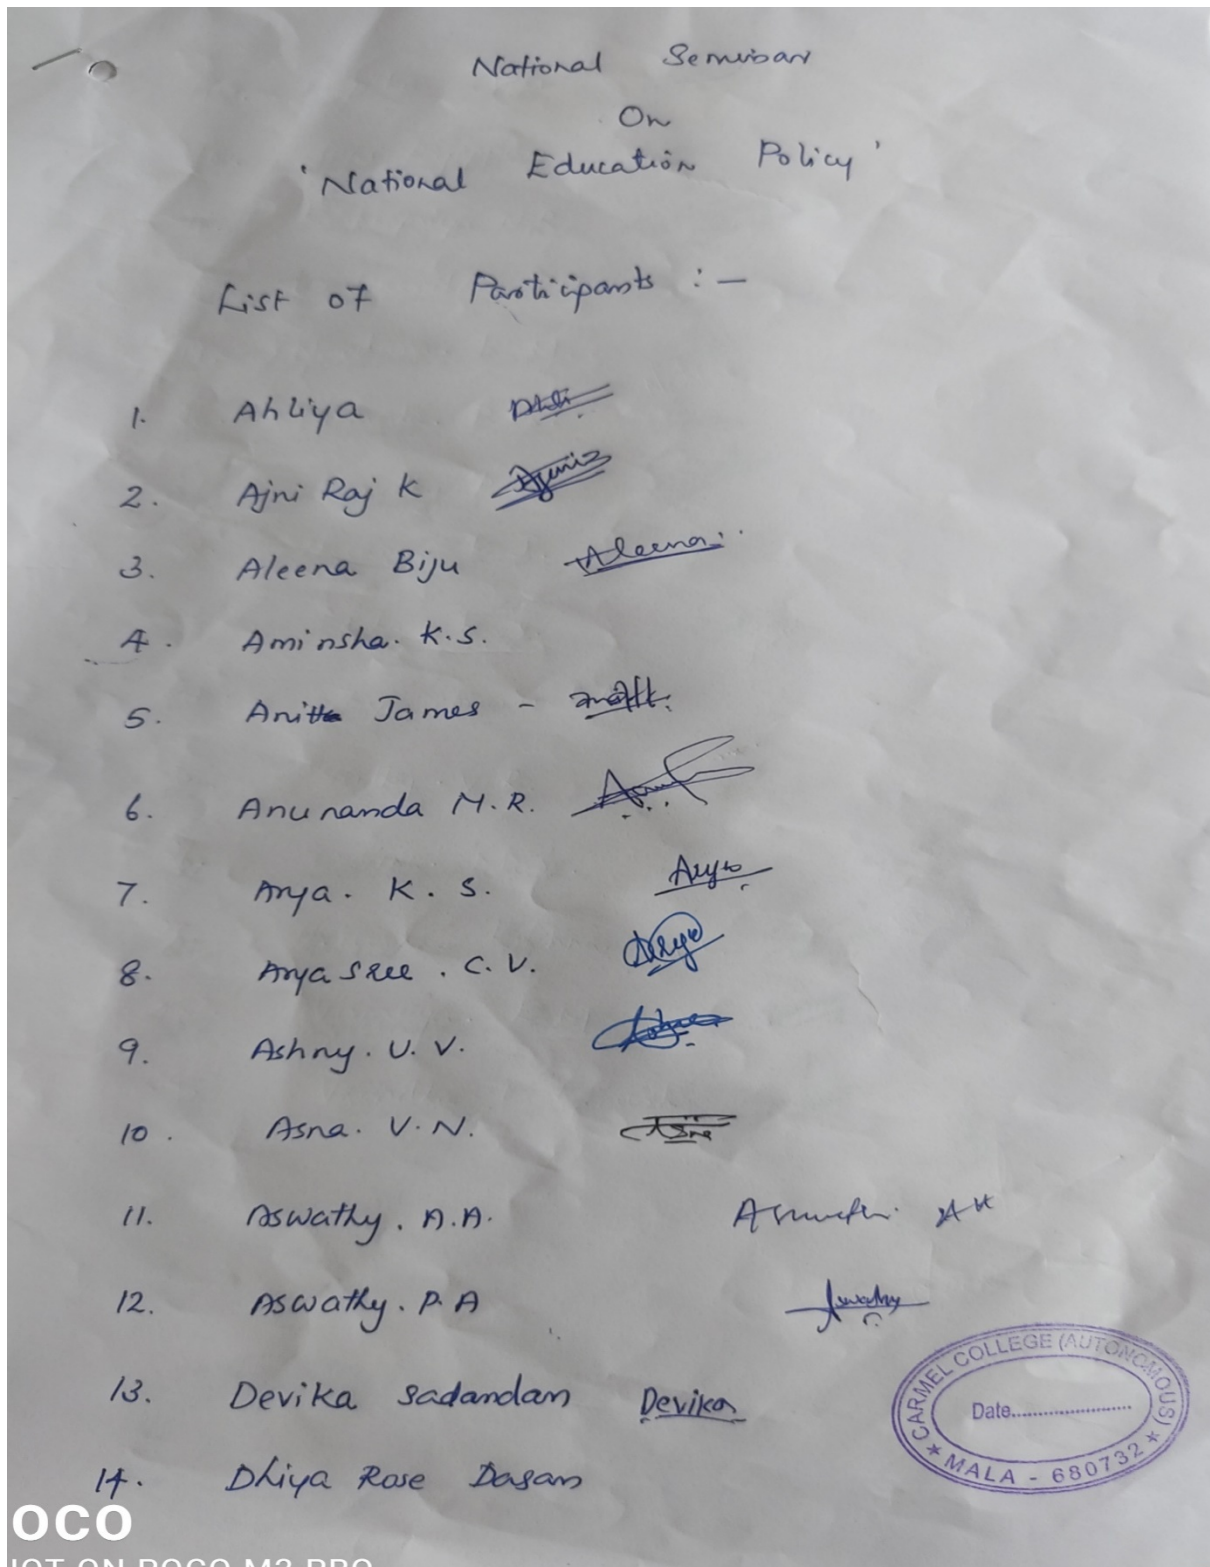 National Seminar
On
'National Education Policy'
List of Participants :-
1. Ahliya
2. Ajni Raj K
3. Aleena Biju Aleena
4. Aminsha. K.S.
5. Anitta James -
6. Anunanda M.R.
7. Arya. K. S. Arya
8. Aryasree. C. V. Arya
9. Ashny. U. V.
10. Asna. V. N. Asna
11. Aswathy. A.A.
12. Aswathy. P. A Aswathy
13. Devika Sadandan Devika
14. Dhiya Rose Dasan
CARMEL COLLEGE (AUTONOMOUS)
Date..............................
★ MALA - 680732 ★
OCO
HOT ON POCO M3 PRO